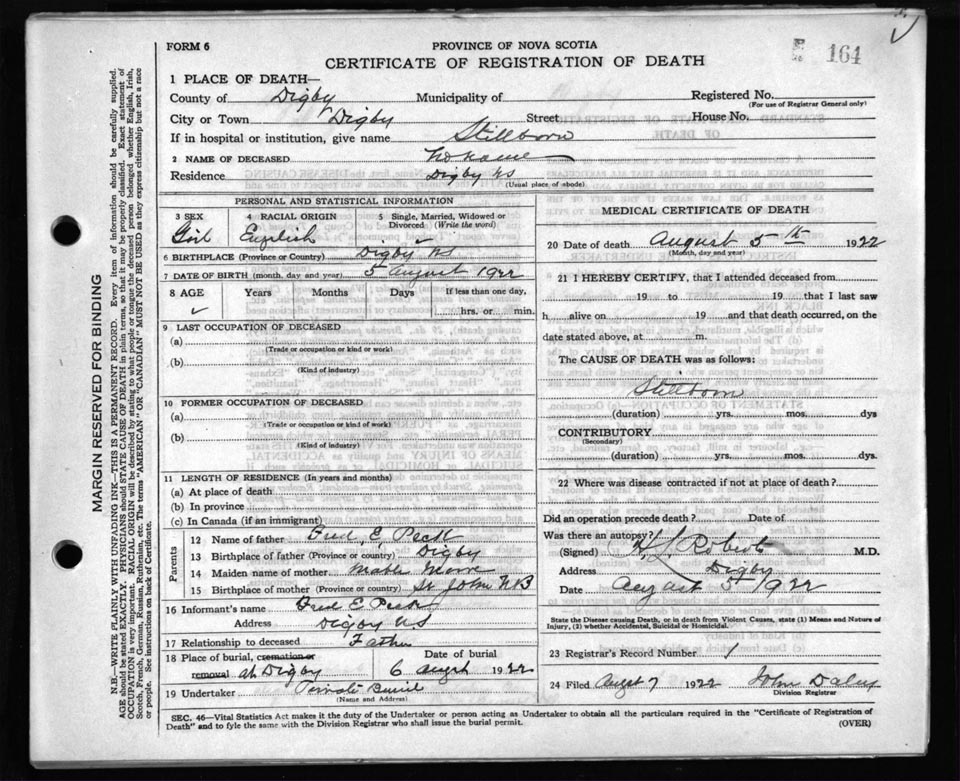 FORM 6
PROVINCE OF NOVA SCOTIA
CERTIFICATE OF REGISTRATION OF DEATH
164
1 PLACE OF DEATH—
County of Digby Municipality of Registered No.
(For use of Registrar General only)
City or Town Digby Street House No.
If in hospital or institution, give name Stillborn
2 NAME OF DECEASED No name
Residence Digby NS
(Usual place of abode)
PERSONAL AND STATISTICAL INFORMATION
3 SEX 4 RACIAL ORIGIN 5 Single, Married, Widowed or Divorced (Write the word)
Girl English
6 BIRTHPLACE (Province or Country) Digby NS
7 DATE OF BIRTH (month, day and year) 5 August 1922
8 AGE Years Months Days If less than one day,
hrs. or min.
9 LAST OCCUPATION OF DECEASED
(a)
(Trade or occupation or kind or work)
(b)
(Kind of industry)
10 FORMER OCCUPATION OF DECEASED
(a)
(Trade or occupation or kind or work)
(b)
(Kind of industry)
11 LENGTH OF RESIDENCE (In years and months)
(a) At place of death
(b) In province
(c) In Canada (if an immigrant)
Parents
12 Name of father Fred E. Peck
13 Birthplace of father (Province or country) Digby
14 Maiden name of mother Mable
15 Birthplace of mother (Province or country) St John NB
16 Informant's name Fred E Peck
Address Digby NS
17 Relationship to deceased Father
18 Place of burial, cremation or Date of burial
removal at Digby 6 August 1922
19 Undertaker Private Burial
(Name and Address)
MEDICAL CERTIFICATE OF DEATH
20 Date of death August 5th 1922
(Month, day and year)
21 I HEREBY CERTIFY, that I attended deceased from
19 to 19 that I last saw
h alive on 19 and that death occurred, on the
date stated above, at m.
The CAUSE OF DEATH was as follows:
Stillborn
(duration) yrs. mos. dys
CONTRIBUTORY
(Secondary)
(duration) yrs. mos. dys.
22 Where was disease contracted if not at place of death?
Did an operation precede death? Date of
Was there an autopsy?
(Signed) Roberts M.D.
Address Digby
Date August 5th 1922
State the Disease causing Death, or in death from Violent Causes, state (1) Means and Nature of
Injury, (2) whether Accidental, Suicidal or Homicidal.
23 Registrar's Record Number 1
24 Filed August 7 1922 John Daley
Division Registrar
SEC. 46—Vital Statistics Act makes it the duty of the Undertaker or person acting as Undertaker to obtain all the particulars required in the "Certificate of Registration of
Death" and to fyle the same with the Division Registrar who shall issue the burial permit. (OVER)
MARGIN RESERVED FOR BINDING
N.B.—WRITE PLAINLY WITH UNFADING INK—THIS IS A PERMANENT RECORD. Every item of information should be carefully supplied.
AGE should be stated EXACTLY. PHYSICIANS should STATE CAUSE OF DEATH in plain terms, so that it may be properly classified. Exact statement of
OCCUPATION is very important. RACIAL ORIGIN will be described by stating to what people or tongue the deceased person belonged whether English, Irish,
Scotch, French, German, Russian, Ruthenian, etc. The terms "AMERICAN" OR "CANADIAN" MUST NOT BE USED as they express citizenship but not a race
or people. See instructions on back of Certificate.